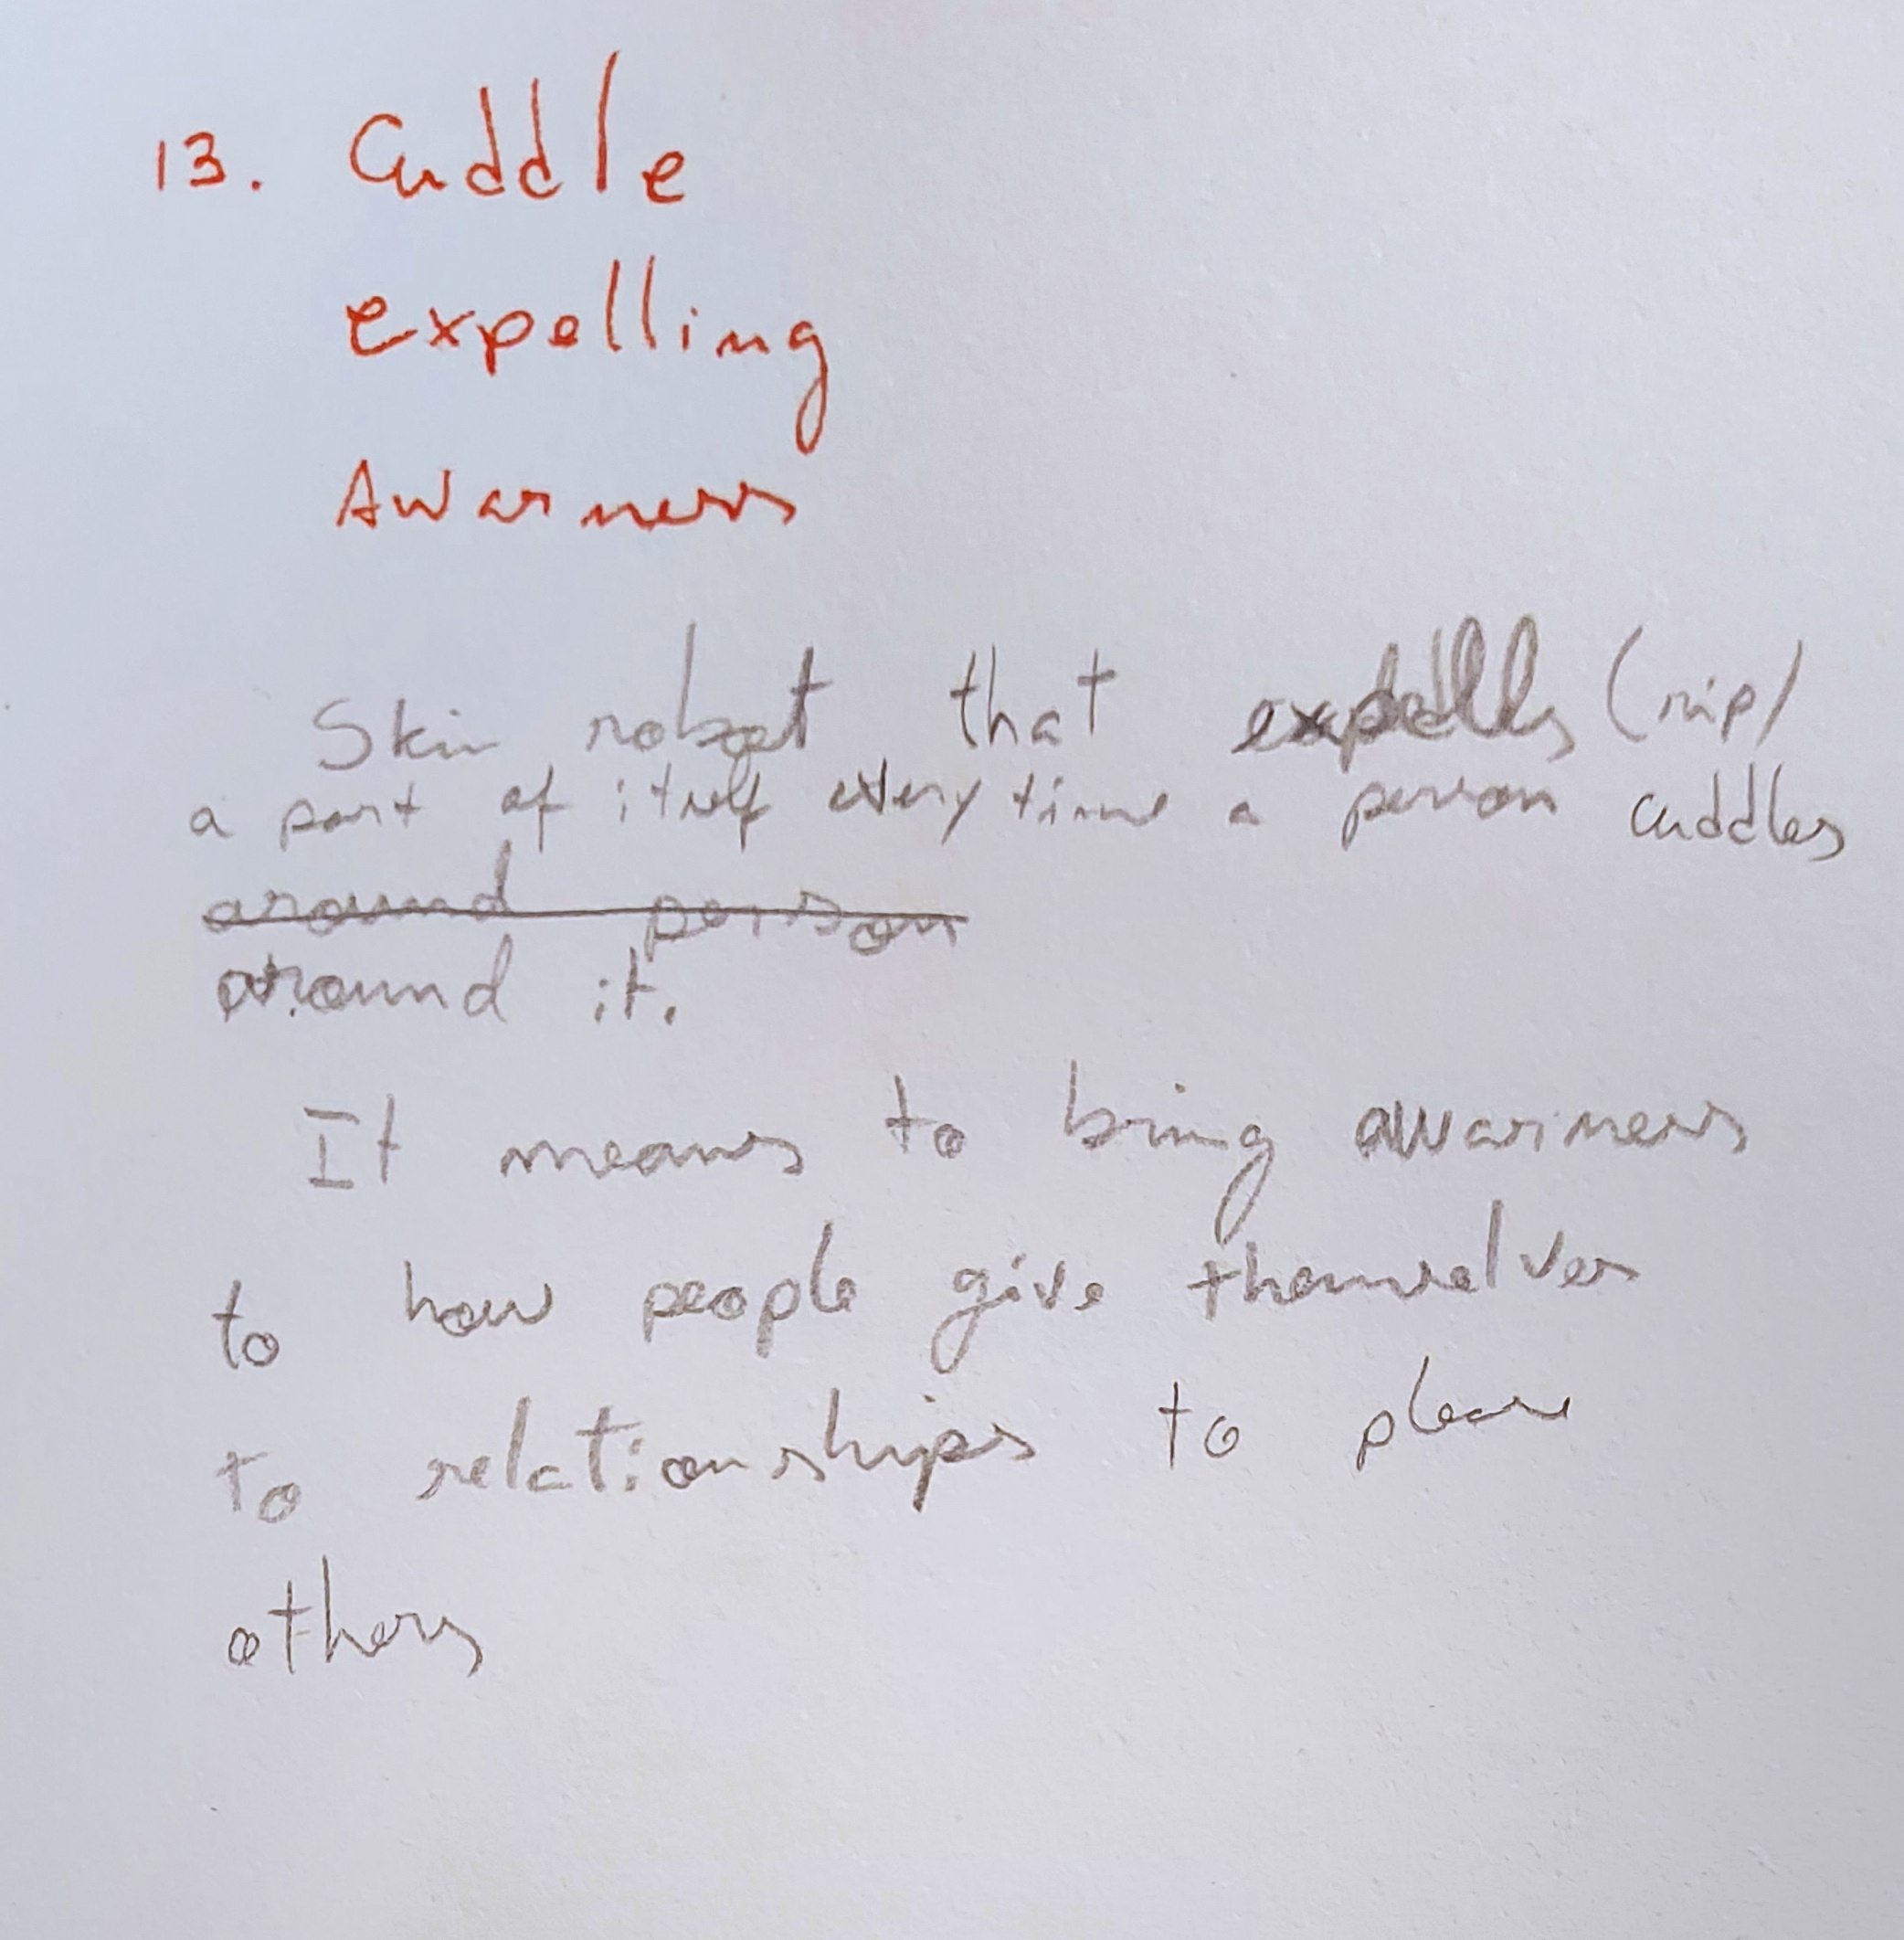 13. Cuddle
expelling
Awarness
Skin robot that expells (rip/
a part of itself every time a person cuddles
around person
around it.
It means to bring awarness
to how people give themselves
to relationships to please
others